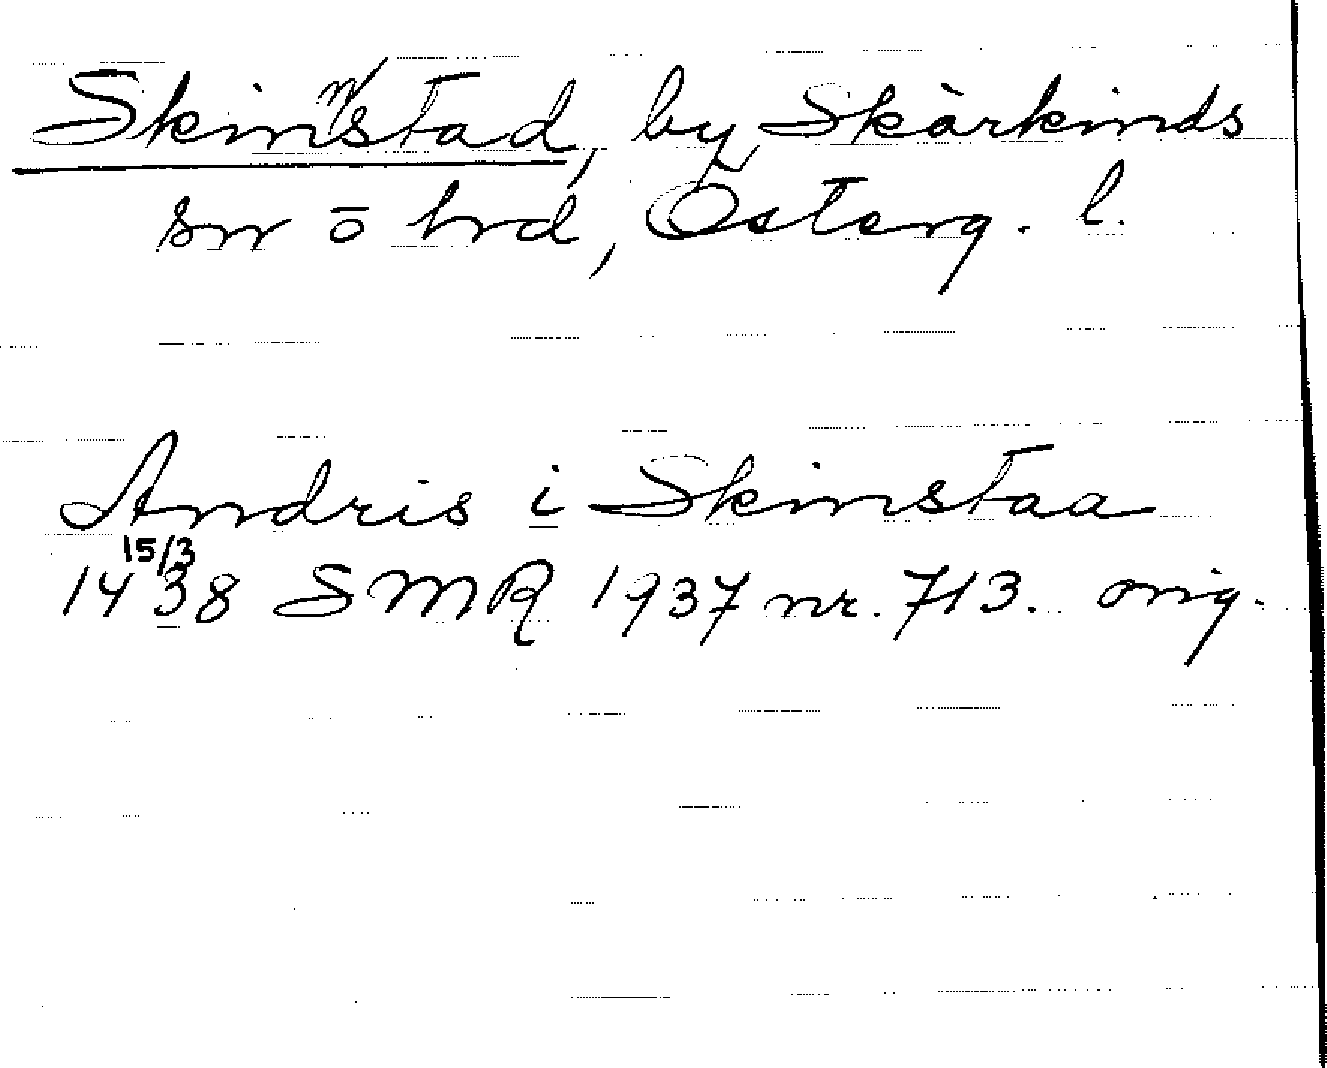 Skinnstad, by, Skärkinds
sn o hrd, Österg. l.
Andris i Skinstaa
15/3
1438 SMR 1937 nr. 713. orig.